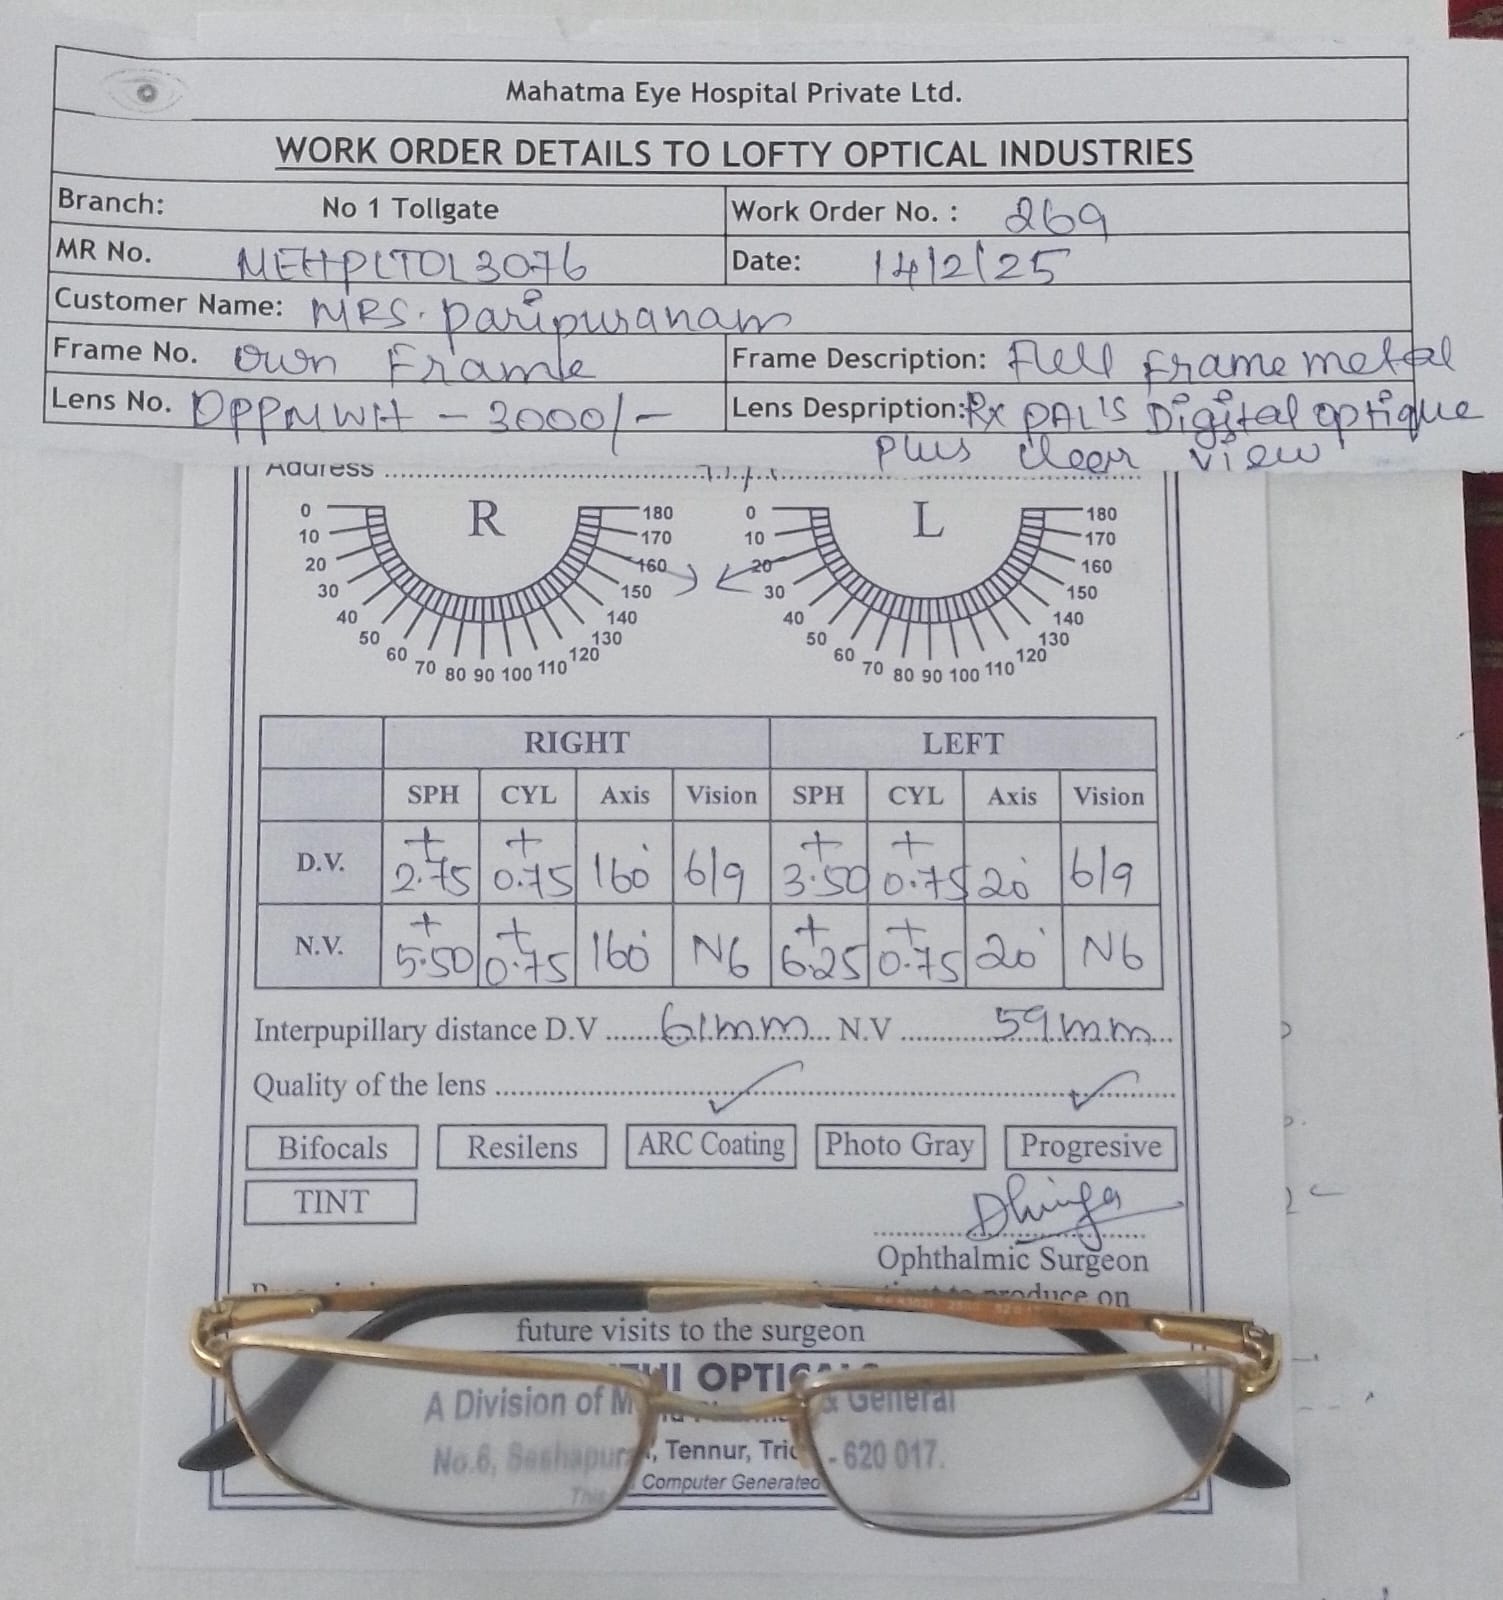 Mahatma Eye Hospital Private Ltd.
WORK ORDER DETAILS TO LOFTY OPTICAL INDUSTRIES
Branch: No 1 Tollgate Work Order No. : 269
MR No. MEHPLTOL3076 Date: 14/2/25
Customer Name: MRS. Paripuranam
Frame No. Own Frame Frame Description: Full Frame metal
Lens No. DPPMWH - 3000/- Lens Despription: Rx PAL'S Digital optique
Plus clear view
Address
R L
0 10 20 30 40 50 60 70 80 90 100 110 120 130 140 150 160 170 180
0 10 20 30 40 50 60 70 80 90 100 110 120 130 140 150 160 170 180
RIGHT LEFT
SPH CYL Axis Vision SPH CYL Axis Vision
D.V. +2.75 +0.75 160° 6/9 +3.50 +0.75 20° 6/9
N.V. +5.50 +0.75 160° N6 +6.25 +0.75 20° N6
Interpupillary distance D.V 61mm N.V 59mm
Quality of the lens
Bifocals Resilens ARC Coating Photo Gray Progresive
TINT
Ophthalmic Surgeon
produce on
future visits to the surgeon
OPTICALS
A Division of & General
No.6, Tennur, - 620 017.
Computer Generated